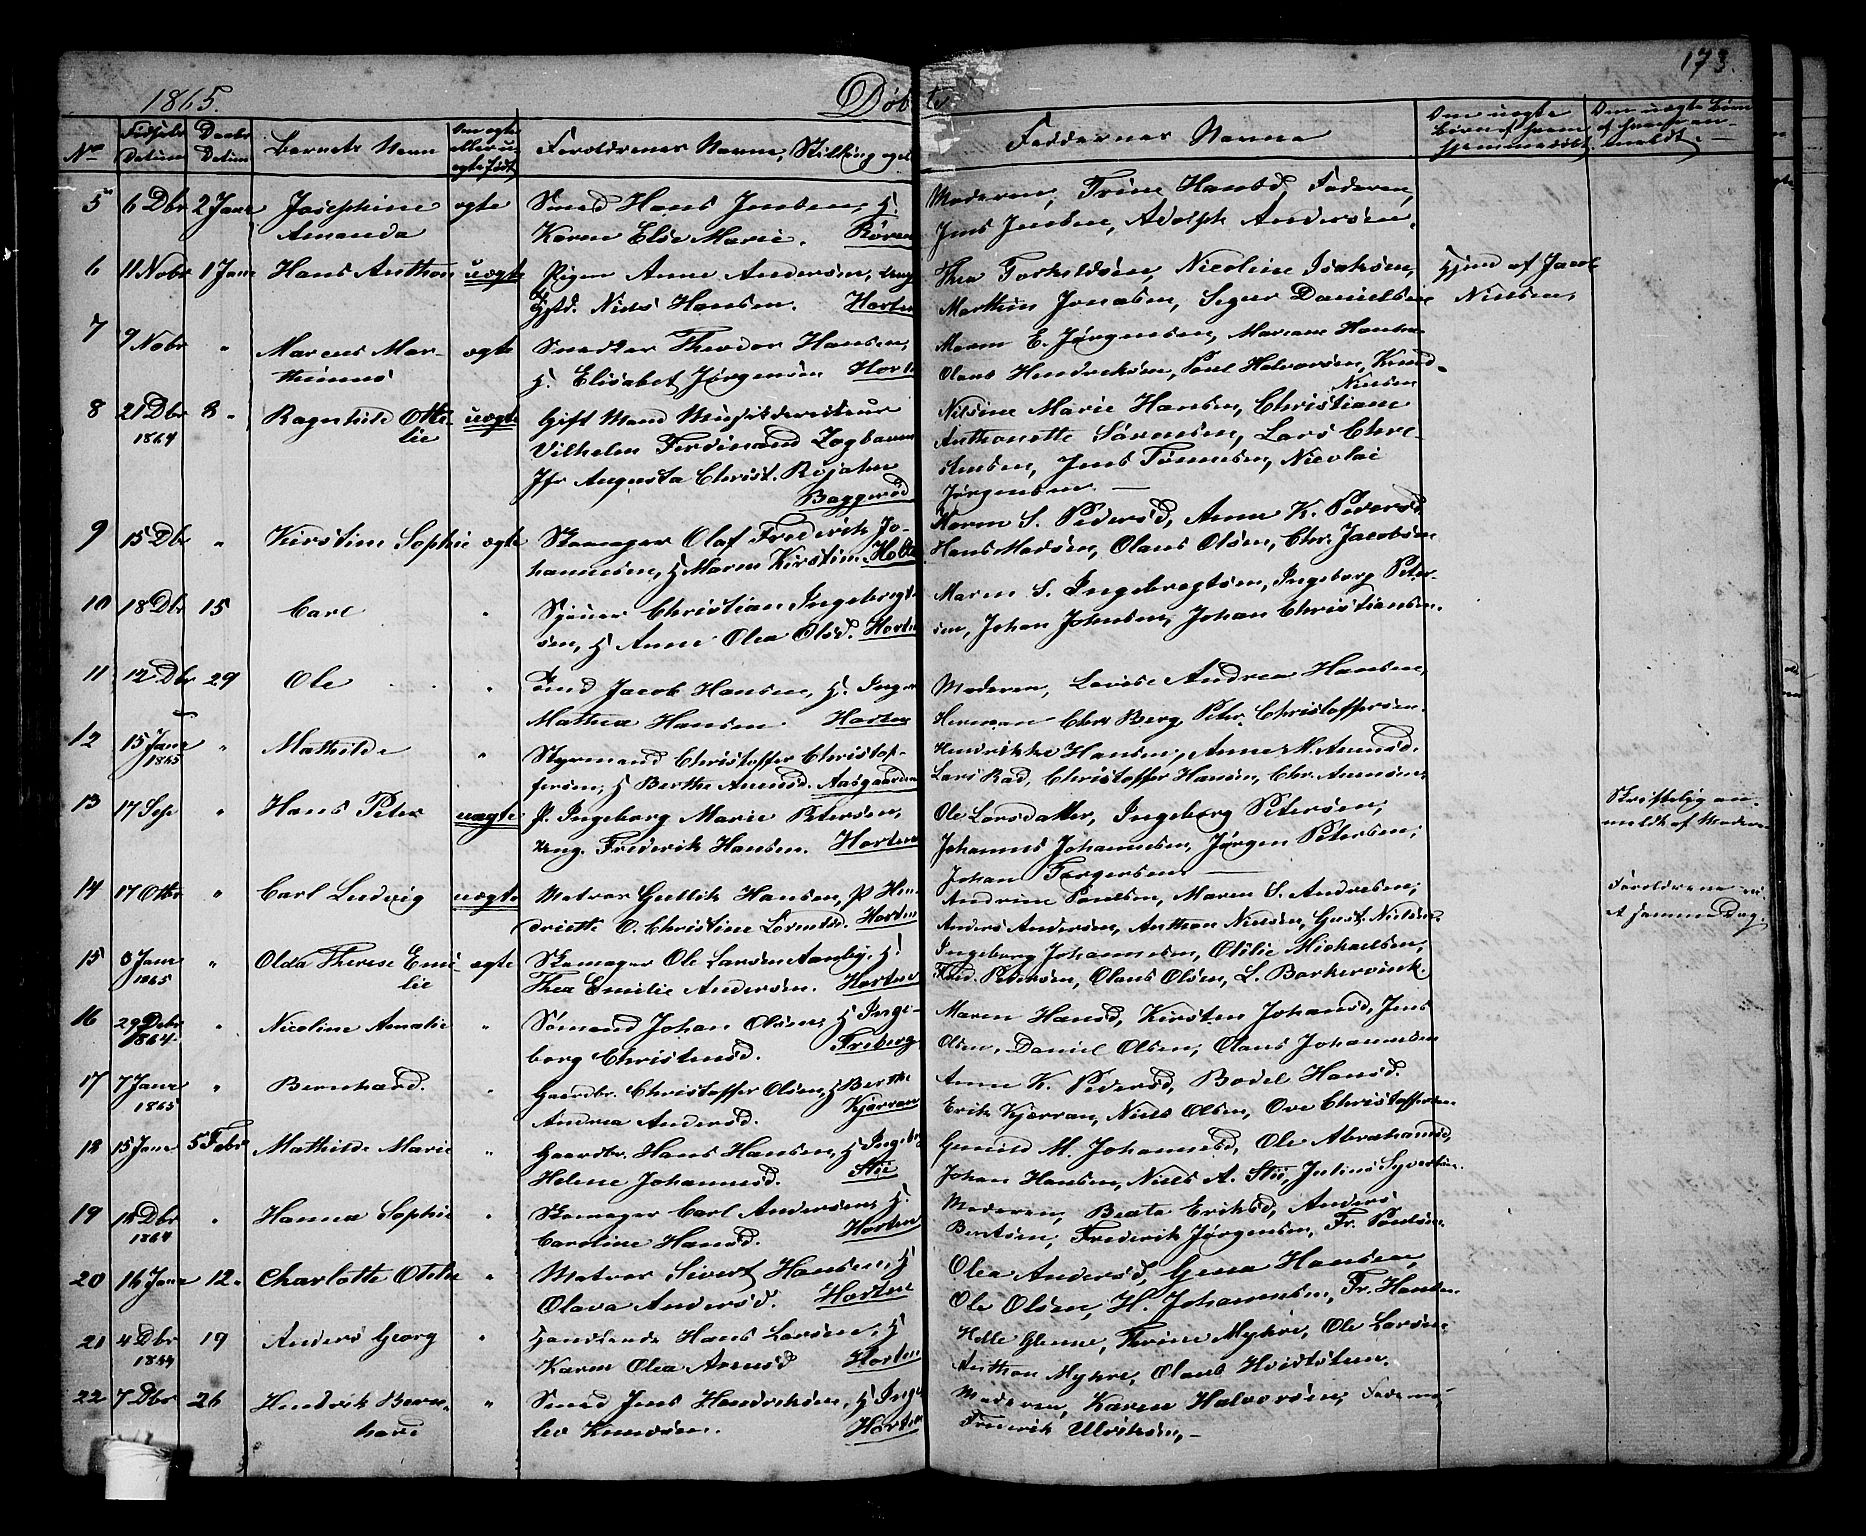 1865.
Døbte
173.
No
Fødsels Datum
Daabs Datum
Barnets Navn
Om ægte eller uægte født
Forældrenes Navne, Stilling
Faddernes Navne
Om uægte Børn af hvem hjemmedøbt
Om uægte Børn af hvem anmeldt.
5 6 Dbr 2 Janr Josephine Amanda ægte
Smed Hans Jensen, H.
Karen Else Marie. Røren
Moderen, Trine Hansd, Faderen,
Jens Jensen, Adolph Andersen.
6 11 Nobr 1 Janr Hans Anthon uægte
Pigen Anne Andersen, Ung
Niels Hansen. Horten
Thea Torkildsen, Nicoline Isaksen,
Marthin Jonasen, Segur Danielsen
Hjmd af Jacob
Nielsen,
7 9 Nobr " Marcus Marthinius ægte
Snedker Theodor Hansen,
H. Elisabet Jørgensen Horten
Maren E. Jørgensen, Mariane Hansen
Olaus Hendriksen, Poul Halvorsen, Knud
Nielsen
8 21 Dbr 1864 8 " Ragnhilde Ottilie uægte
Gift Mand Musikdirecteur
Vilhelm Ferdinand Zogbaum
Jfr Augusta Christ. Rojahn
Baggerød
Nilsine Marie Hansen, Christiane
Anthonette Sørensen, Lars Christensen, Jens Tønnesen, Nicolai
Jørgensen
9 15 Dbr " Kirstine Sophie ægte
Skomager Olaf Frederik Johannesen, H Maren Kirstine Holte
Maren S. Pedersd, Anne K. Pedersd
Hans Madsen, Olaus Olsen, Chr. Jacobsen
10 18 Dbr 15 Carl "
Christian Ingebregtsen, H Anne Olea Olsd. Horten
Maren S. Ingebregtsen, Ingeborg Petersen, Johan Johnsen, Johan Christiansen.
11 12 Dbr 29 Ole "
Tømd Jacob Hansen, H. Inger
Mathea Hansen. Horten
Moderen, Lovise Andrea Hansen,
Herman Chr. Berg, Peter Christoffersen.
12 15 Janr 1865 " Mathilde "
Styrmand Christoffer Christoffersen, H Berthe Anensd. Aasgaarden
Hendrikke Hansen, Anne M. Anensd.
Lars Rød, Christoffer Hansen, Chr. Anensen
13 17 Sep " Hans Peter uægte
P. Ingeborg Marie Petersen,
Ung. Frederik Hansen. Horten
Ole Larsdatter, Ingeborg Petersen,
Johannes Johannesen, Jørgen Petersen,
Johan Torgersen
Skriftelig anmeldt af Moderen
14 17 Otbr " Carl Ludvig uægte
Matros Gullik Hansen, P Hendriette C. Christine Lorentsd. Horten
Andrine Poulsen, Maren S. Andresen,
Anders Andersen, Anthon Nielsen, Gust. Nielsen
Forældrene vi
et samme Dag.
15 8 Janr 1865 " Olda Therese Emilie ægte
Skomager Ole Larsen Aamby, H.
Thea Emilie Andersen. Horten
Ingeborg Johannesen, Otilie Michaelsen,
Petersen, Olaus Olsen, L. Barkervink.
16 29 Debr 1864. " Nicoline Amalie "
Sømand Johan Olsen, H Ingeborg Christensd. Freberg
Maren Hansd, Kirsten Johansd, Jens
Olsen, Daniel Olsen, Olaus Johannesen
17 7 Janr 1865 " Bernhard. "
Gaardbr. Christoffer Olsen, H Berthe
Andrea Andersd. Kjærran
Anne K. Pedersd, Bodel Hansd.
Erik Kjærran, Niels Olsen, Ove Christoffersen
18 15 Janr 5 Febr Mathilde Marie "
Gaardbr. Hans Hansen, H Ingeborg
Helene Johannesd. Stie
Gunild M. Johannesd, Ole Abrahamsd,
Johan Hansen, Niels A. Stie, Julius Syvertsen.
19 18 Dbr 1864 " Hanna Sophie "
Skomager Carl Andersen, H.
Caroline Hansd. Horten
Moderen, Beata Eriksd, Anders
Berntsen, Frederik Jørgensen, Fr. Poulsen
20 16 Janr 12 " Charlotte Otilie "
Matros Sivert Hansen, H
Olava Andersd. Horten
Olea Andersd, Gena Hansen,
Ole Olsen, H. Johannesen, Fr. Hansen
21 4 Dbr 1864 19 Anders Georg "
Handlende Hans Larsen, H
Karen Olea Arensd Horten
Helle Glenne, Thrine Myhre, Ole Larsen,
Anthon Myhre, Olaus Hvidsten.
22 7 Dbr 26 Hendrik Bernhard "
Smed Jens Hendriksen, H Inge
Knudsen. Horten
Moderen, Karen Halvorsen, Faderen
Frederik Ulriksen,